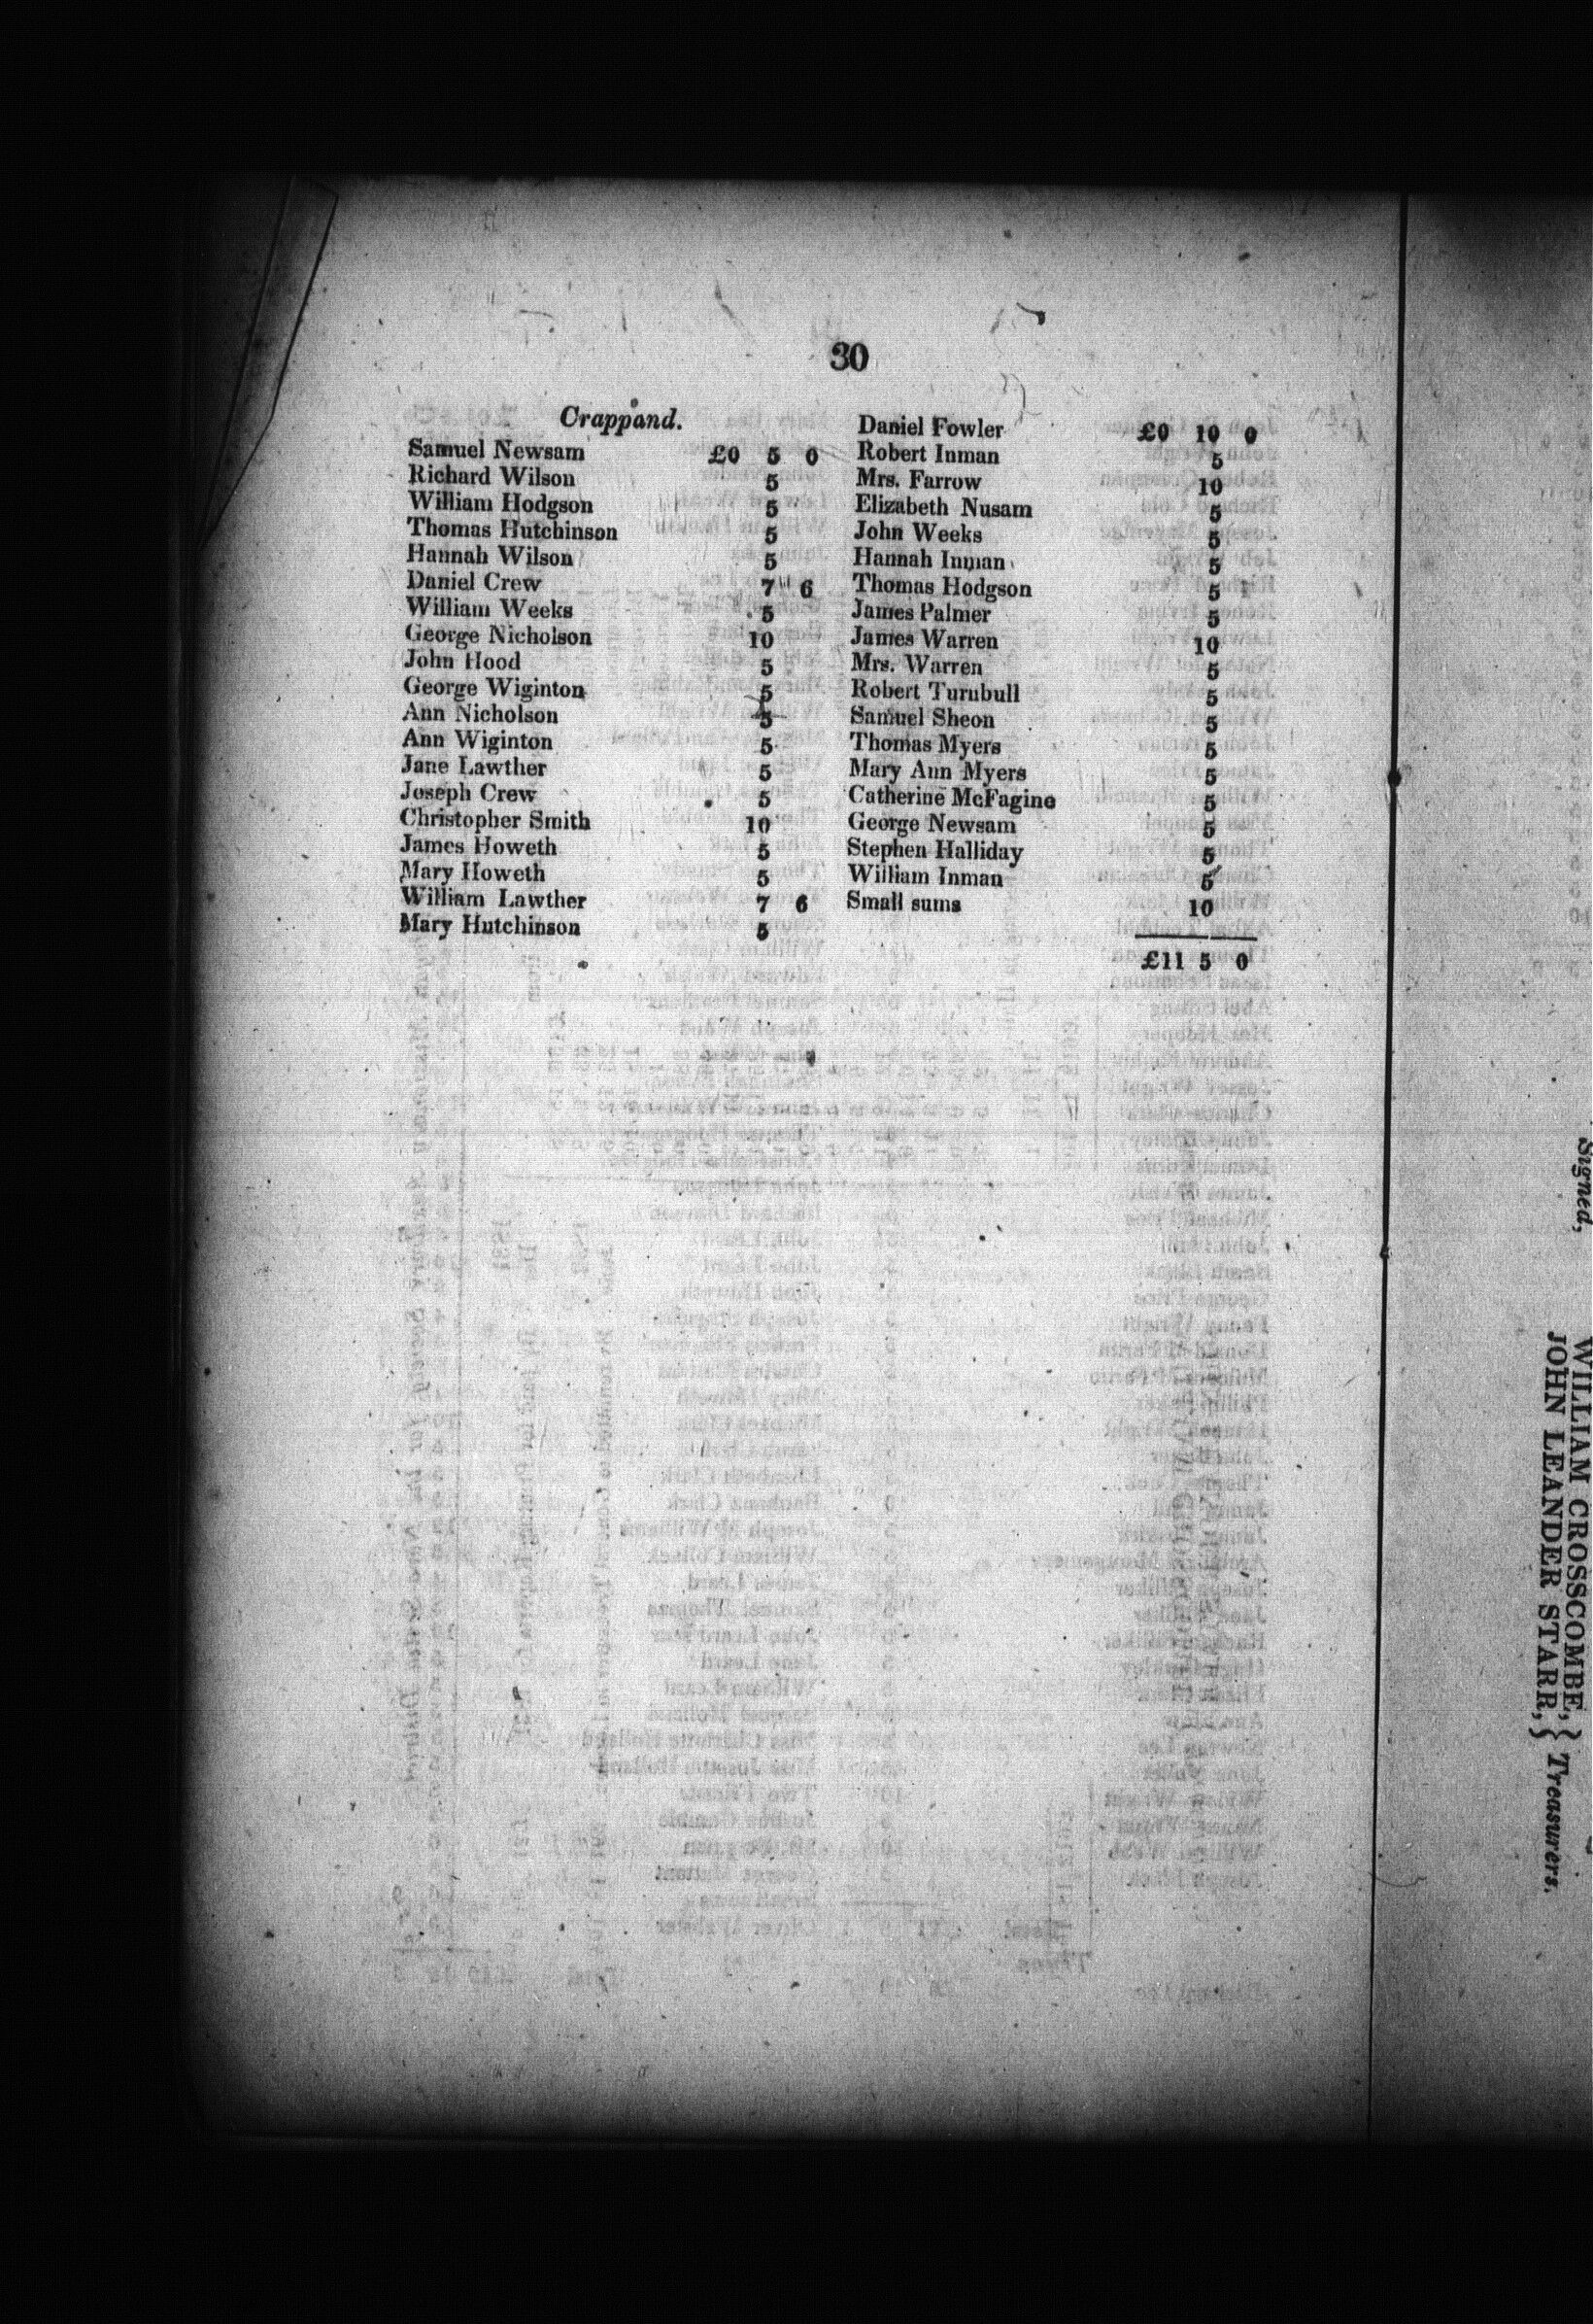 30
Crappand.
Samuel Newsam £0 5 0
Richard Wilson 5
William Hodgson 5
Thomas Hutchinson 5
Hannah Wilson 5
Daniel Crew 7 6
William Weeks 5
George Nicholson 10
John Hood 5
George Wiginton 5
Ann Nicholson 5
Ann Wiginton 5
Jane Lawther 5
Joseph Crew 5
Christopher Smith 10
James Howeth 5
Mary Howeth 5
William Lawther 7 6
Mary Hutchinson 5
Daniel Fowler £0 10 0
Robert Inman 5
Mrs. Farrow 10
Elizabeth Nusam 5
John Weeks 5
Hannah Inman 5
Thomas Hodgson 5
James Palmer 5
James Warren 10
Mrs. Warren 5
Robert Turnbull 5
Samuel Sheon 5
Thomas Myers 5
Mary Ann Myers 5
Catherine McFagine 5
George Newsam 5
Stephen Halliday 5
William Inman 5
Small sums 10
£11 5 0
Signed,
WILLIAM CROSSCOMBE, }
JOHN LEANDER STARR, } Treasurers.